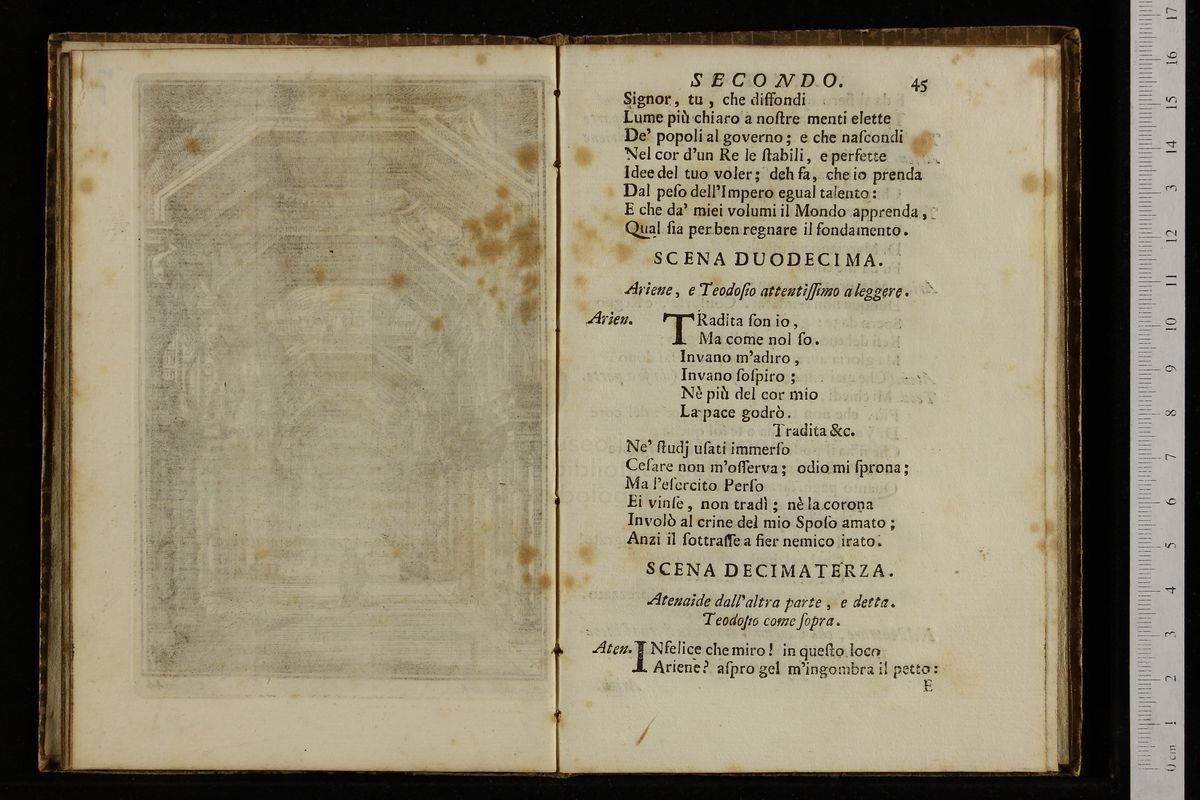 SECONDO. 45
Signor, tu, che diffondi
Lume più chiaro a noſtre menti elette
De' popoli al governo; e che naſcondi
Nel cor d'un Re le ſtabili, e perfette
Idee del tuo voler; deh fa, che io prenda
Dal peſo dell'Impero egual talento:
E che da' miei volumi il Mondo apprenda,
Qual ſia per ben regnare il fondamento.
SCENA DUODECIMA.
Ariene, e Teodoſio attentiſſimo a leggere.
Arien. TRadita ſon io,
Ma come nol ſo.
Invano m'adiro,
Invano ſoſpiro;
Nè più del cor mio
La pace godrò.
Tradita &c.
Ne' ſtudj uſati immerſo
Ceſare non m'oſſerva; odio mi ſprona;
Ma l'eſercito Perſo
Ei vinſe, non tradì; nè la corona
Involò al crine del mio Spoſo amato;
Anzi il ſottraſſe a fier nemico irato.
SCENA DECIMATERZA.
Atenaide dall'altra parte, e detta.
Teodoſio come ſopra.
Aten. INfelice che miro! in queſto loco
Ariene? aſpro gel m'ingombra il petto:
E
0 cm 1 2 3 4 5 6 7 8 9 10 11 12 13 14 15 16 17